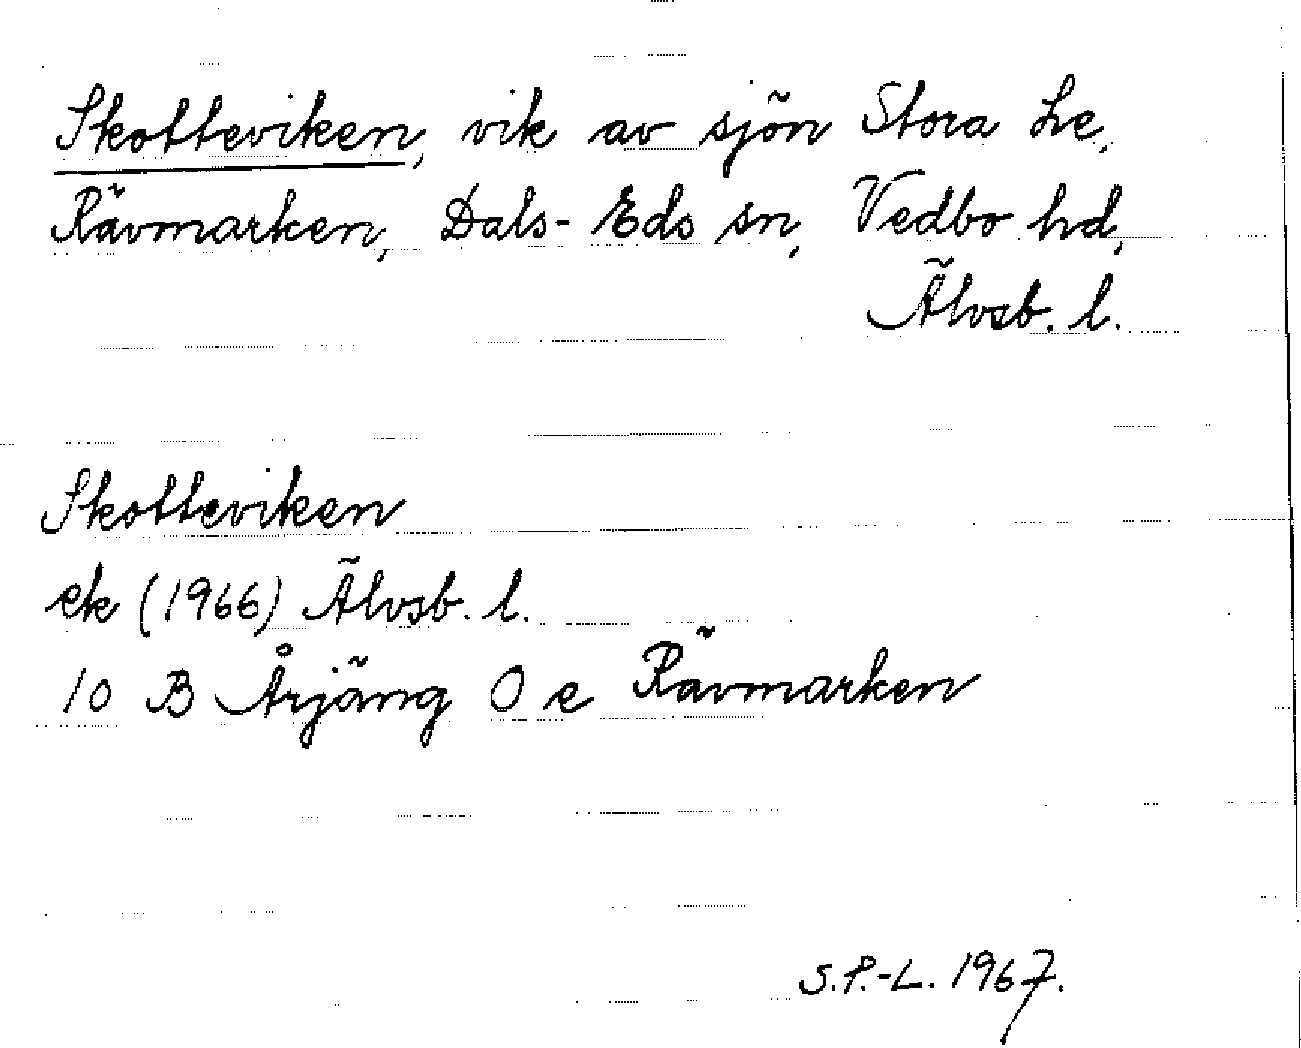 Skotteviken, vik av sjön Stora Le,
Rävmarken, Dals-Eds sn, Vedbo hd,
Älvsb. l.
Skotteviken
ek (1966) Älvsb. l.
10 B Årjäng 0 e Rävmarken
S.P.-L. 1967.